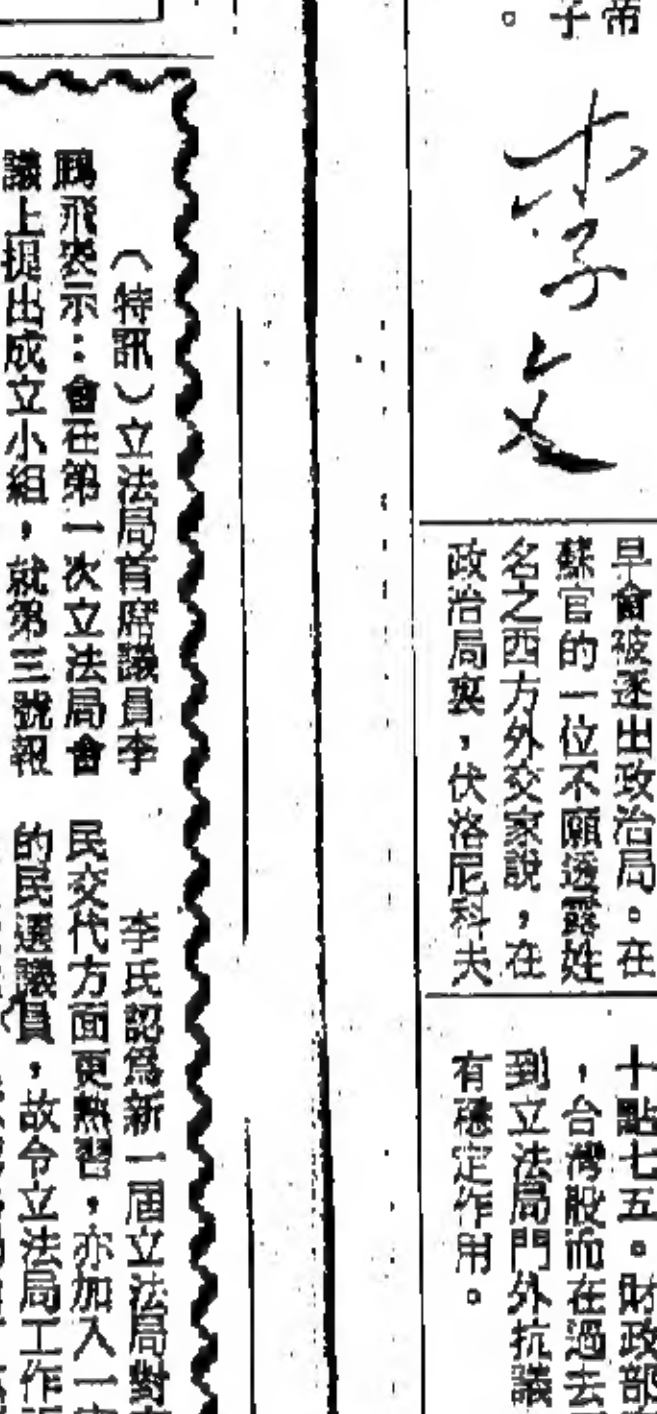 帝
子。
李文
早會被逐出政治局。在
蘇官的一位不願透露姓
名之西方外交家說，在
政治局裏，伏洛尼科夫
十點七五。財政部
，台灣股而在過去
到立法局門外抗議
有穩定作用。
（特訊）立法局首席議員李
鵬飛表示：會在第一次立法局會
議上提出成立小組，就第三號報
李氏認爲新一屆立法局對
民交代方面更熟習，亦加入一
的民選議員，故令立法局工作